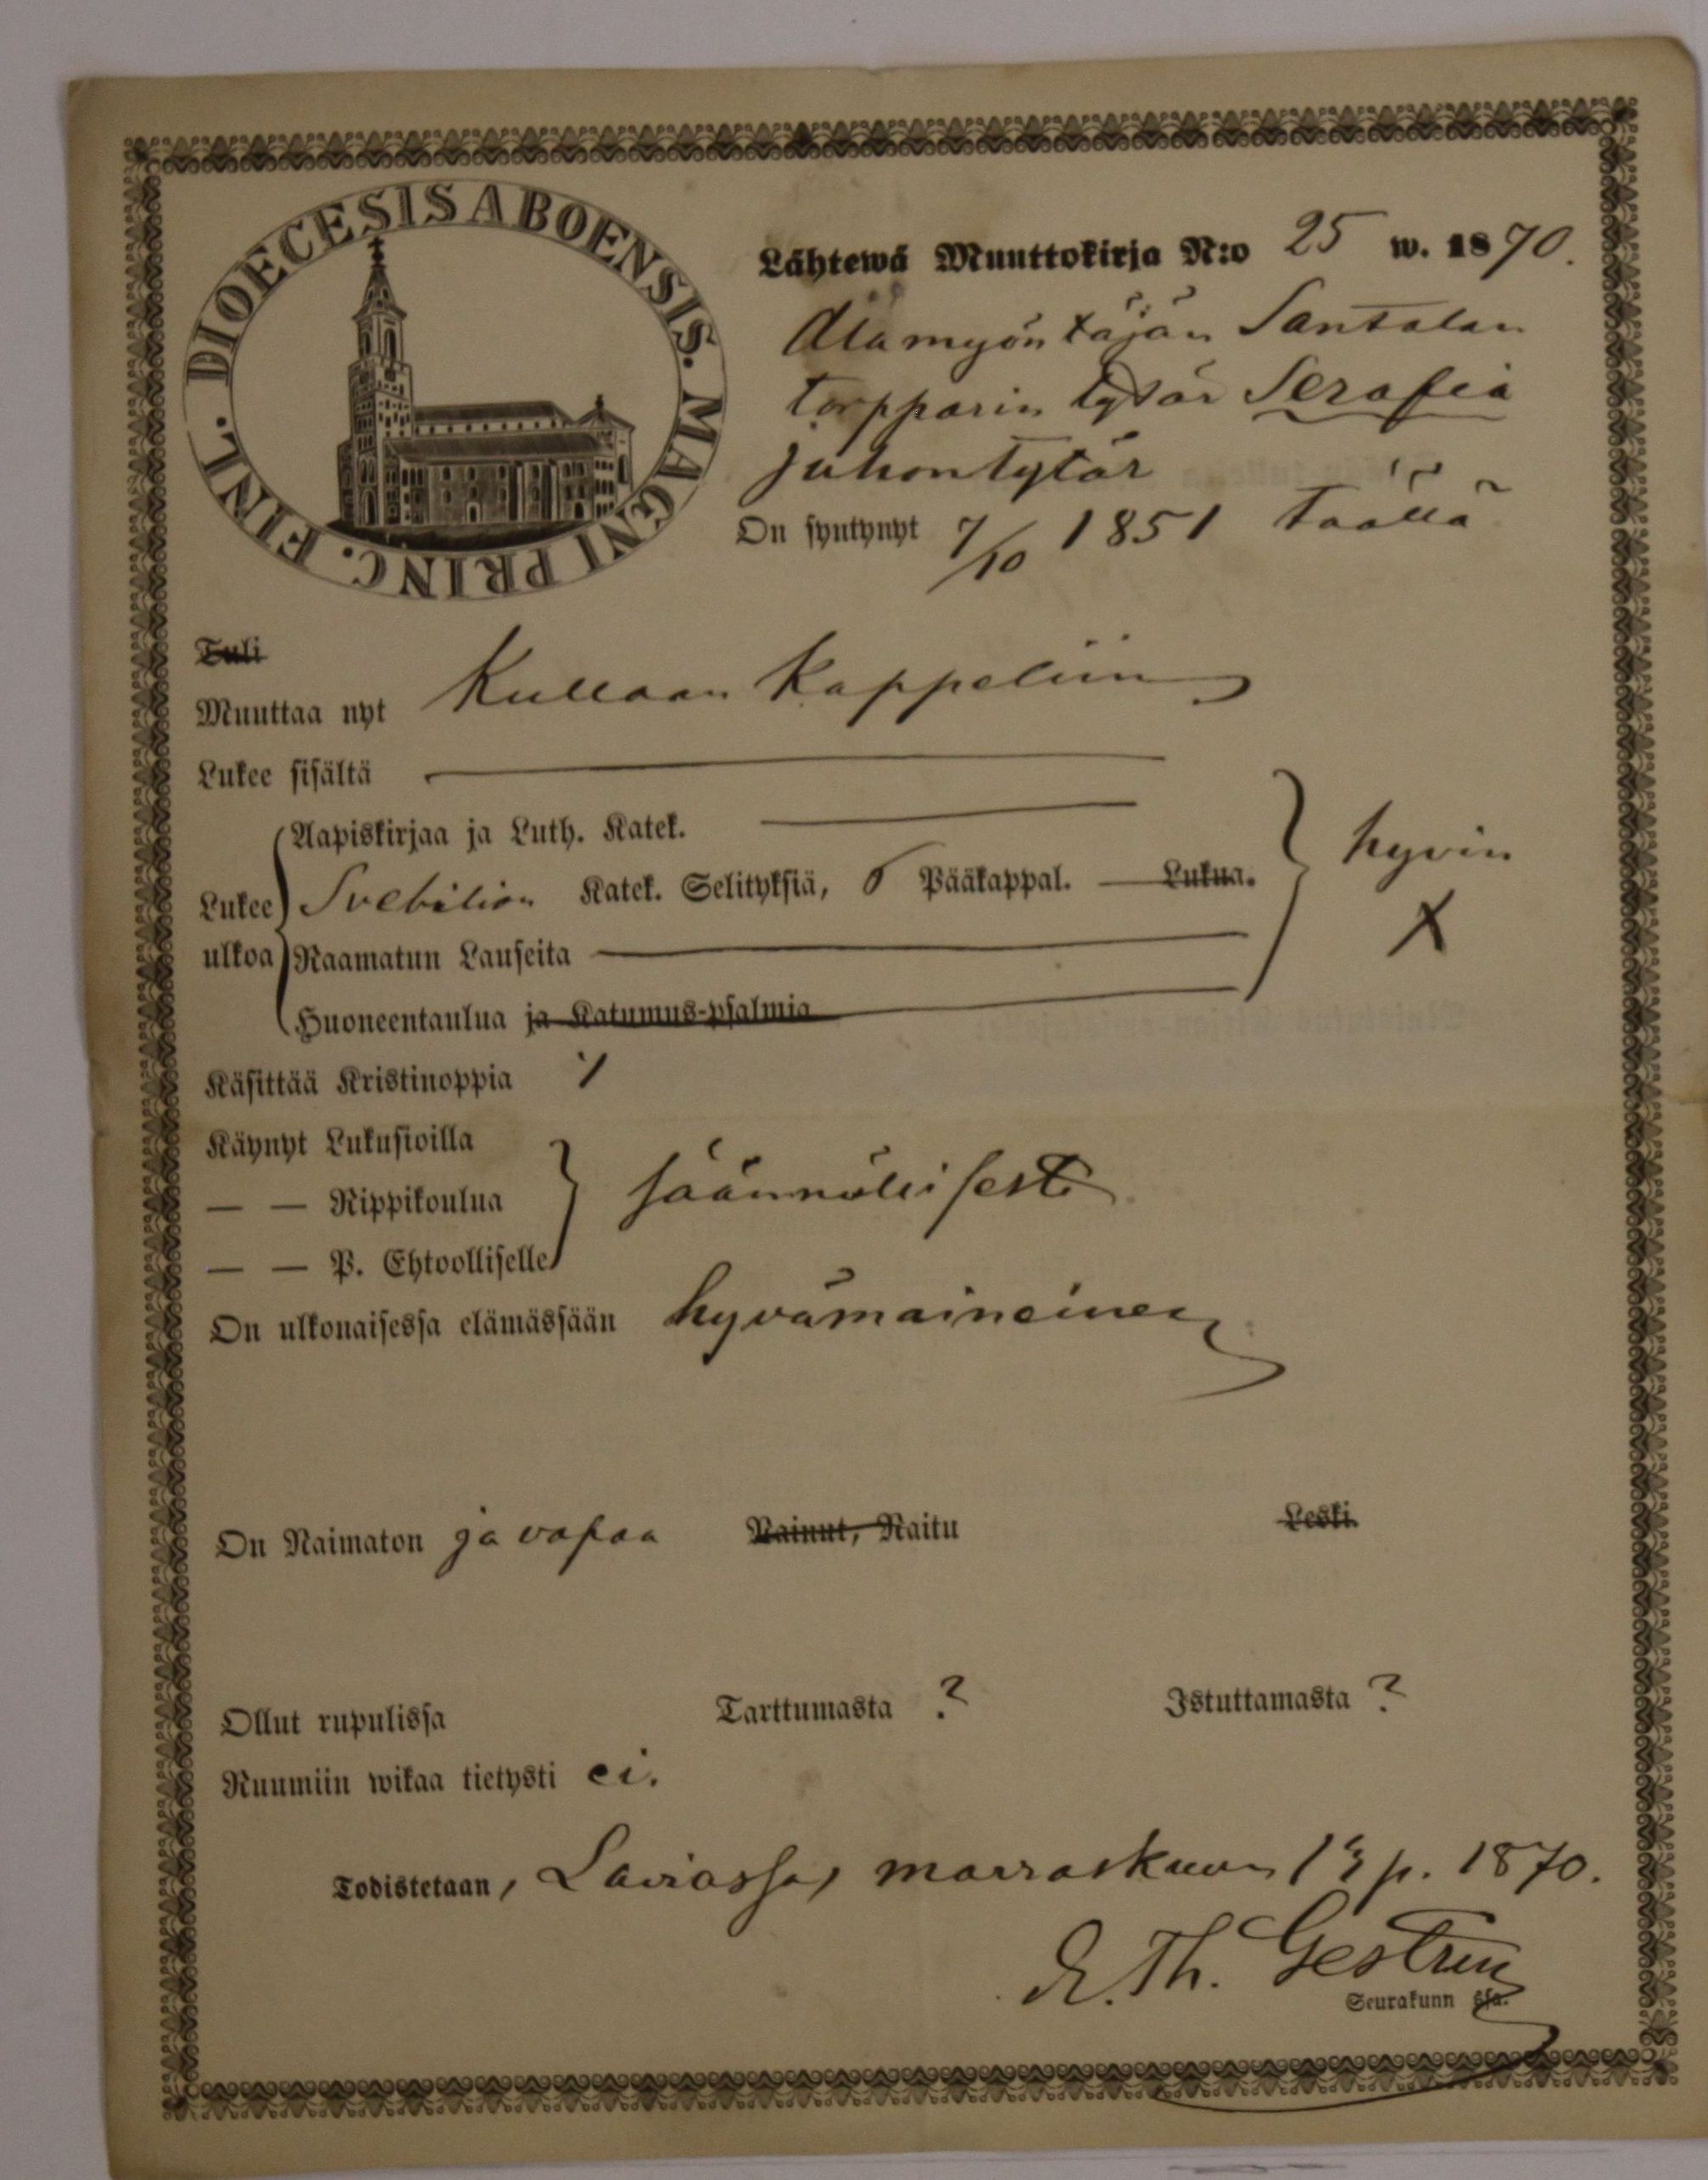 DIOECESIS ABOENSIS. MAGNI PRINC. FINL.
Lähtewä Muuttokirja N:o 25 w. 1870.
Alamyöntäjän Santalan
torpparin tytär Serafia
Juhontytär
On syntynyt 7/10 1851 täällä
Tuli
Muuttaa nyt Kullaan Kappeliin
Lukee sisältä
Aapiskirjaa ja Luth. Katek.
Lukee Svebilion Katek. Selityksiä, 5 Pääkappal. Lukua. hyvin
ulkoa Raamatun Lauseita X
Huoneentaulua ja Katumus-psalmia
Käsittää Kristinoppia
Käynyt Lukusioilla
— — Rippikoulua säännöllisesti
— — P. Ehtoolliselle
On ulkonaisessa elämässään hyvämaineinen
On Naimaton ja vapaa Nainut, Naitu Leski.
Ollut rupulissa Tarttumasta ? Istuttamasta ?
Ruumiin wikaa tietysti ei.
Todistetaan, Laviassa, marraskuun p. 1870.
Th. Gestrin
Seurakunn ssa.